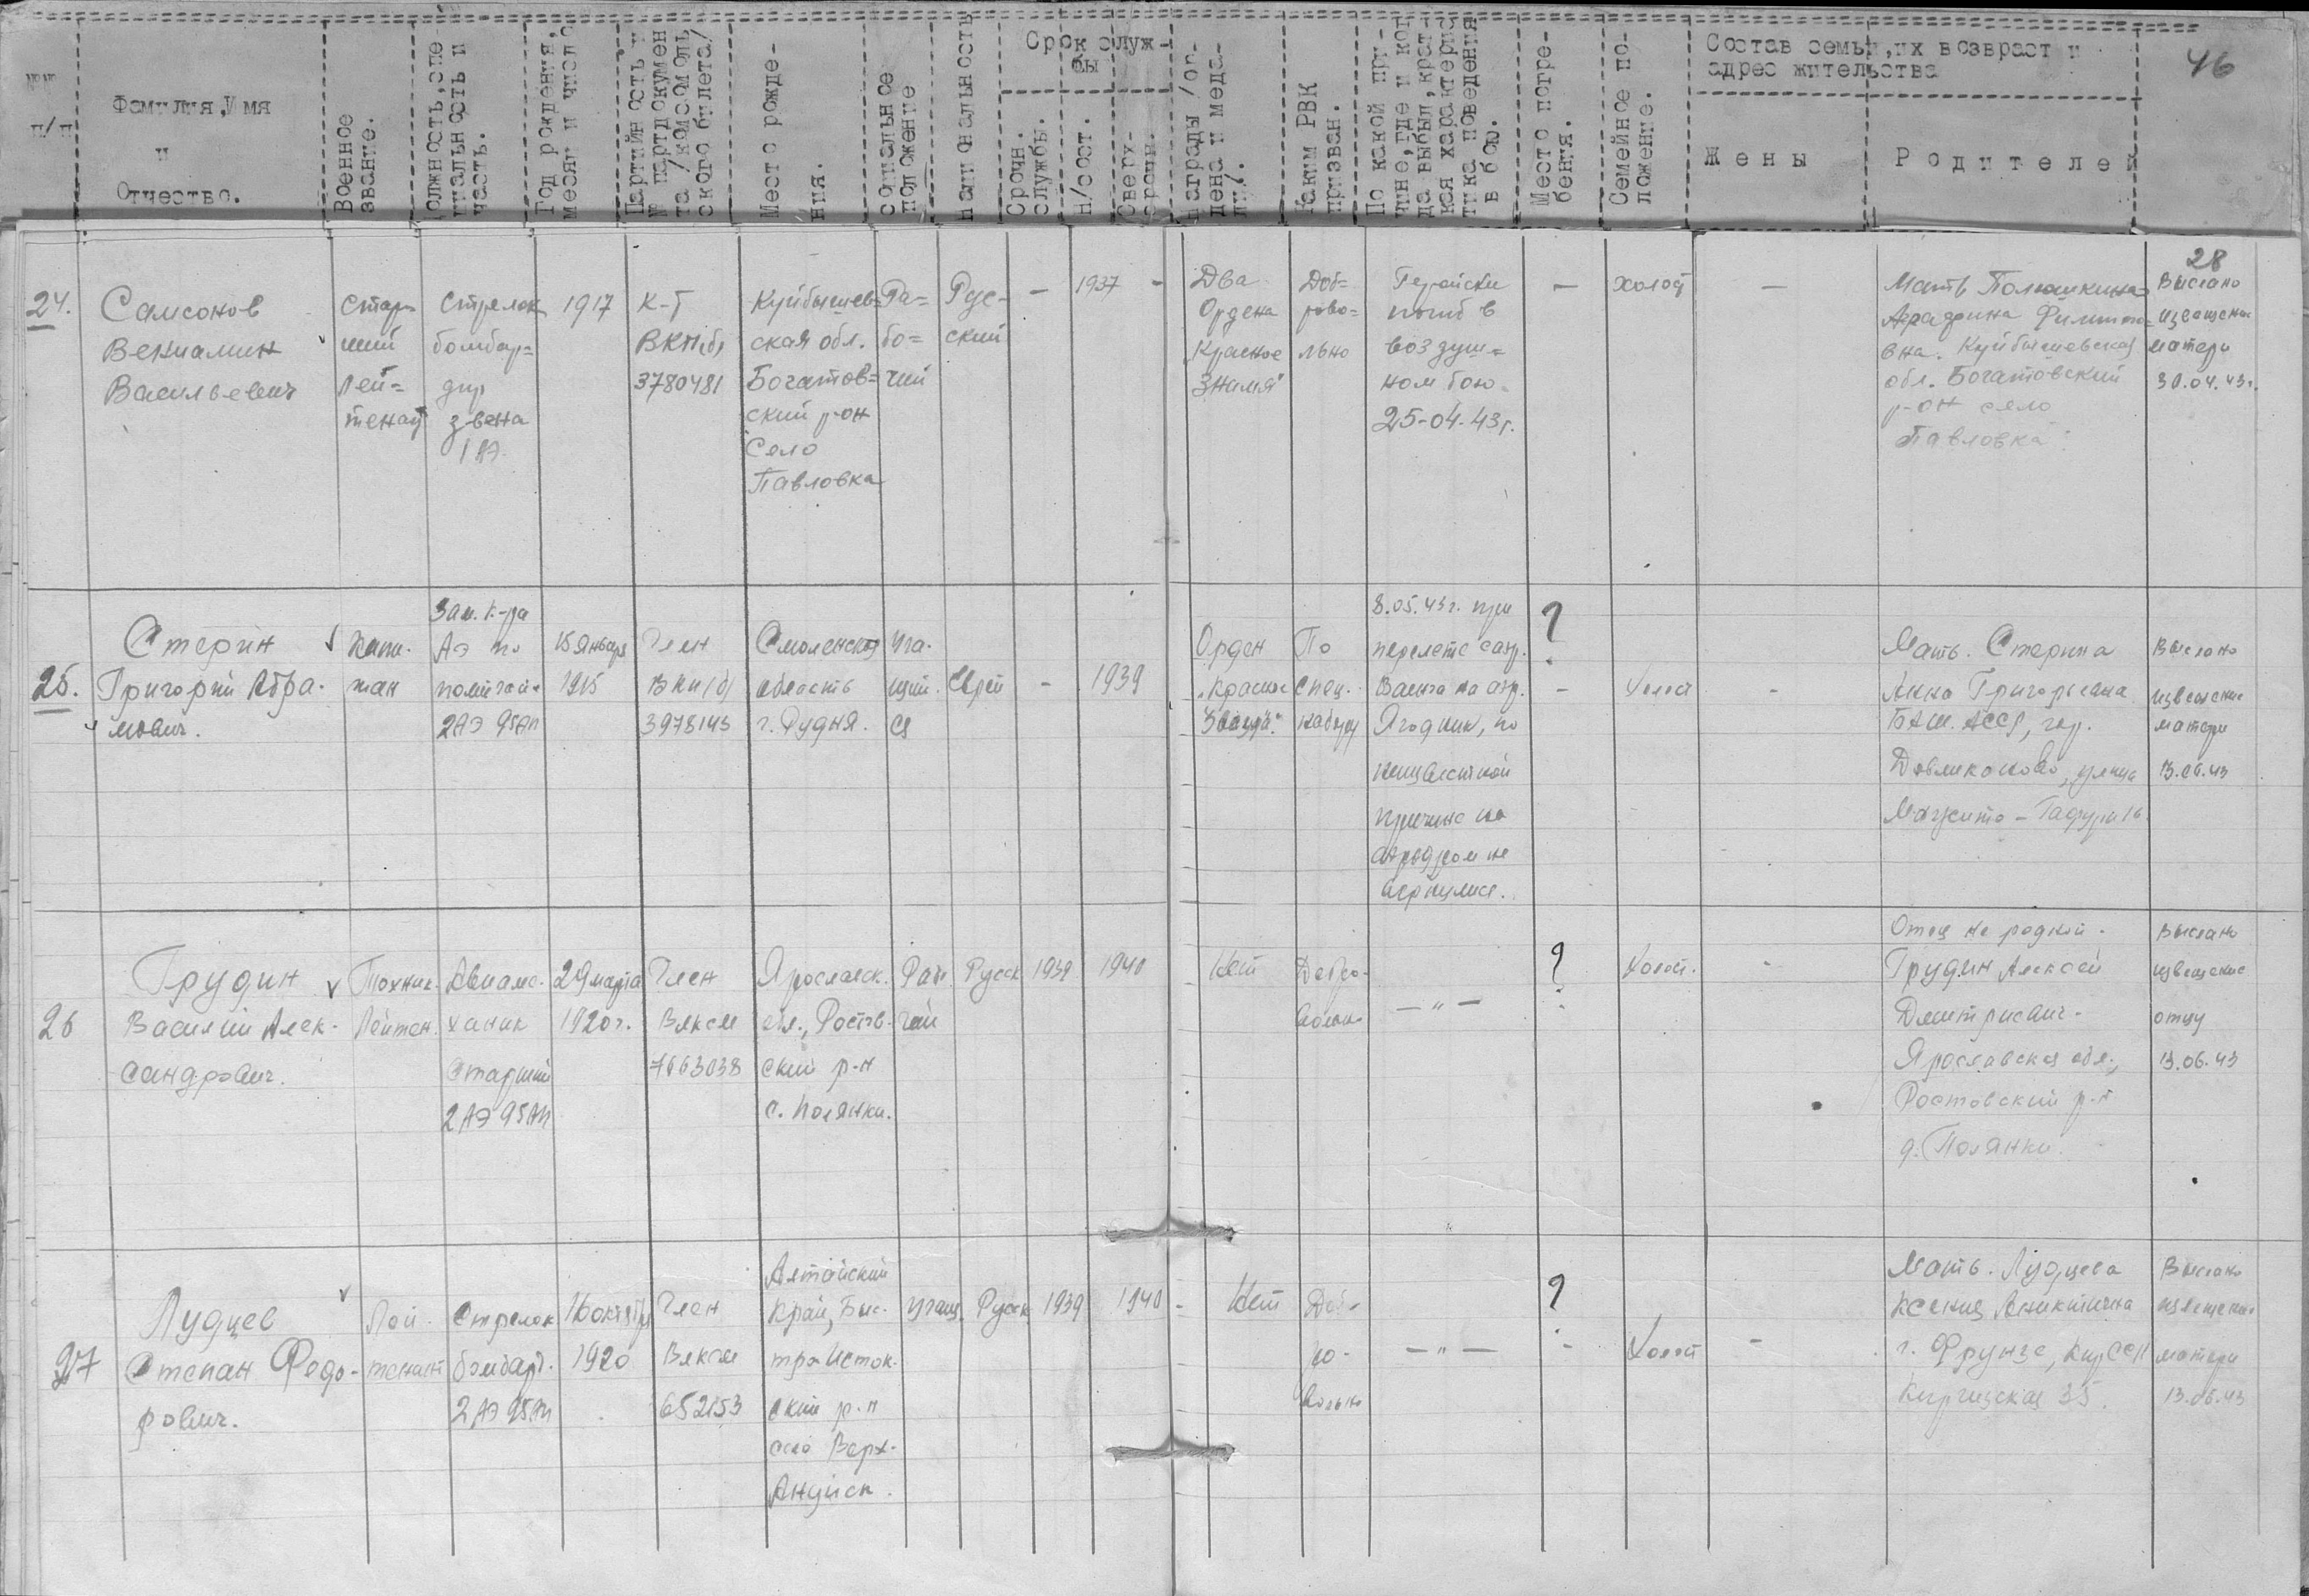 №№ п/п
Фамилия,Имя
и
Отчество.
Военное звание.
Должность,спе-
циальность и
часть.
Год рождения,
месяц и число
Партийность и
№ партдокумен
та /комсомоль
ского билета/
Место рожде-
ния.
социальное
положение
национальность
Срок служ-
бы
Срочн.
службы.
Н/сост.
Сверх-
срочн.
Награды /ор-
дена и меда-
ли/.
Каким РВК
призван.
По какой при-
чине,где и ког
да выбыл,крат-
кая характерис
тика поведения
в бою.
Место погре-
бения.
Семейное по-
ложение.
Состав семьи,их возраст и
адрес жительства
Жены
Родителей
46
28
24.
Самсонов
Вениамин
Васильевич
Стар-
ший
лей=
тенант
Стрелок
бомбар=
дир
звена
1 АЭ
1917
К-т
ВКП(б)
3780481
Куйбышев=
ская обл.
Богатов=
ский р-он
Село
Павловка
Ра=
бо=
чий
Рус-
ский
-
1937
-
Два
Ордена
"Красное
Знамя"
Доб=
рово=
льно
Геройски
погиб в
воздуш=
ном бою
25-04-43г.
-
холост
-
Мать
Аграфина
вна. Куйбышевская
обл. Богатовский
р-он село
Павловка
Выслано
извещение
матери
30.04.43г.
25.
Стерин
Григорий Абра-
мович.
Капи-
тан
Зам. к-ра
АЭ по
политчаи-
2АЭ 95АП
15 января
1915
Член
ВКП(б)
3978143
Смоленская
область
г. Рудня.
Уча-
щий
ся
Еврей
-
1939
Орден
"Красное
Звезда".
По
спец.
набору
8.05.43г. при
перелете с аэр.
Ваенга на аэр.
Ягодник, по
неизвестной
причине на
аэродром не
вернулись.
?
-
Холост
-
Мать. Стерина
Анна Григорьевна
БАШ. АССР, гор.
Давлеканово, улица
Мажита-Гафури 16.
Выслано
извещение
матери
13.06.43
26
Грудин
Василий Алек-
сандрович.
Техник-
Лейтен.
Авиаме-
ханик
Старший
2АЭ 95АП
29 марта
1920г.
Член
Влксм
7663038
Ярославск.
обл., Ростов-
ский р-н
с. Полянки.
Раб-
чий
Русск
1939
1940
Нет
Добро-
вольн.
- " -
?
Холост.
-
Отец не родной.
Грудин Алексей
Дмитриевич.
Ярославская обл.,
Ростовский р-н
д. Полянки.
Выслано
извещение
отцу
13.06.43
27
Лудцев
Степан Федо-
рович.
Лей-
тенант
Стрелок
бомбард.
2 АЭ 95АП
16 октября
1920
Член
Влксм
652153
Алтайский
Край, Быс-
тро Исток-
ский р-н
село Верх-
Ануйск.
Учащ.
Русск
1939
1940
-
Нет
Доб-
ро-
вольно
- " -
?
-
Холост
-
Мать. Лудцева
Ксения Аникитична
г. Фрунзе, Кир ССР
Киргизская 35.
Выслано
извещение
матери
13.06.43